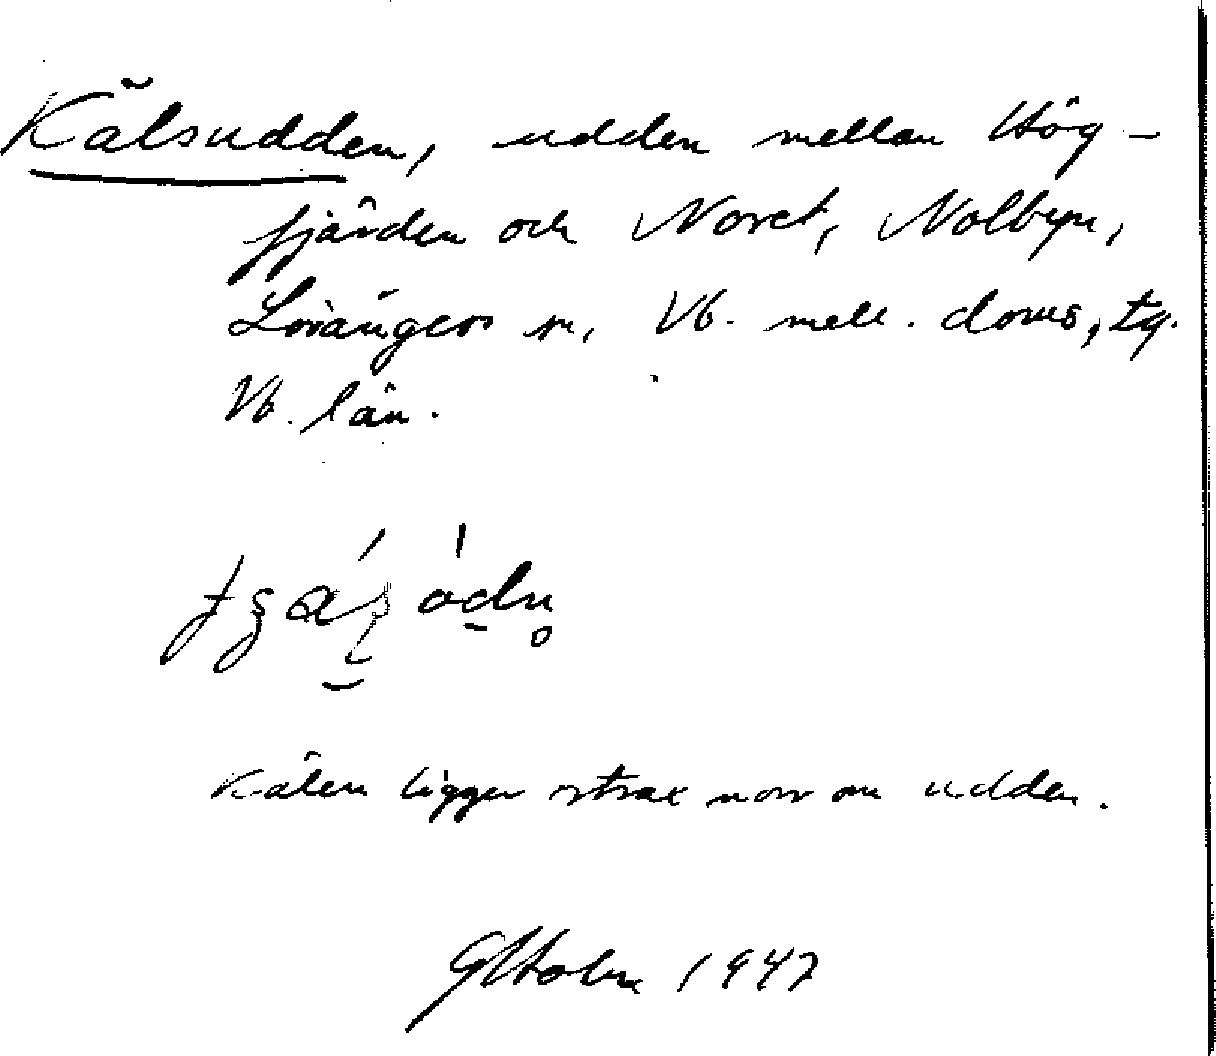 Kälsudden, udden mellan Hög-
fjärden och Noret, Nolbyn,
Lövångers sn, Vb. mell. doms, tg.
Vb. län.
Kälen ligger strax norr om udden.
GHolm 1947